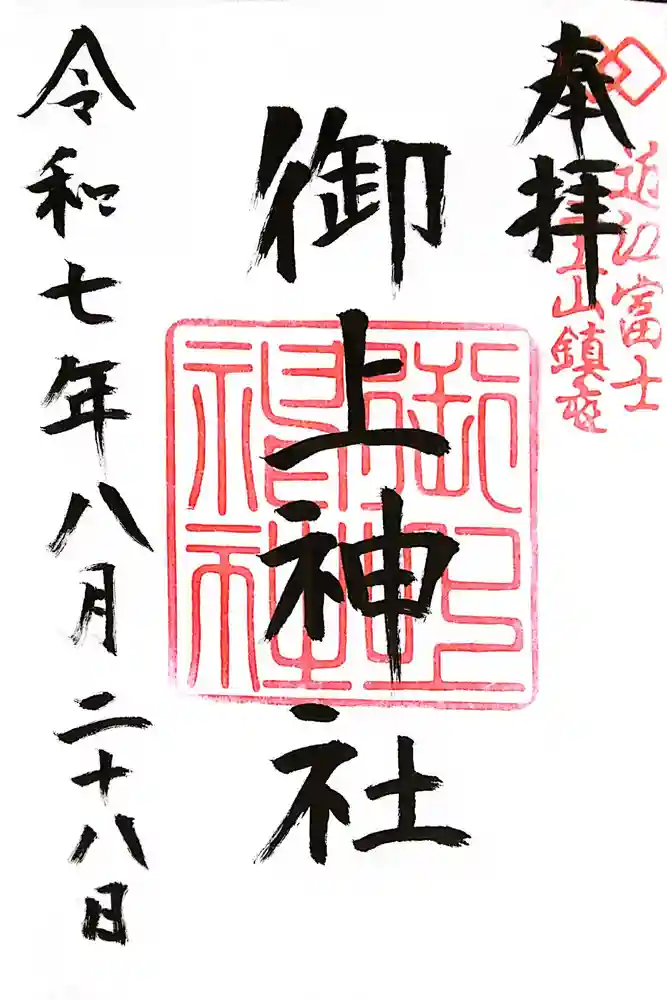 奉拝
近江富士
三上山鎮座
御上神社
令和七年八月二十八日